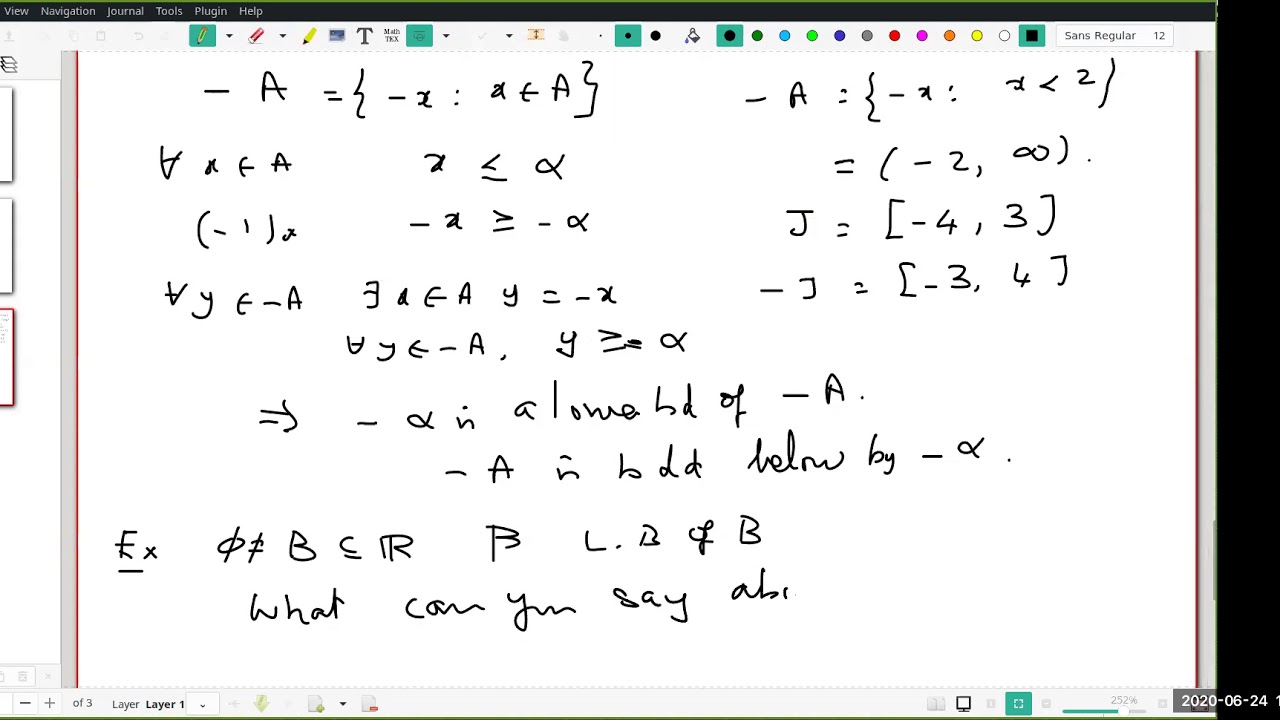 View Navigation Journal Tools Plugin Help
Math TEX Sans Regular 12
- A = { -x : x ∈ A }
- A = { -x : x < 2 }
∀ x ∈ A x ≤ α
= (-2, ∞).
(-1)x -x ≥ -α
J = [-4, 3]
∀ y ∈ -A ∃ x ∈ A y = -x
- J = [-3, 4]
∀ y ∈ -A, y ≥ - α
⇒ - α is a lower bd of - A.
- A is bdd below by - α.
Ex ϕ ≠ B ⊆ ℝ β L.B of B
What can you say abo
of 3 Layer Layer 1 252% 2020-06-24